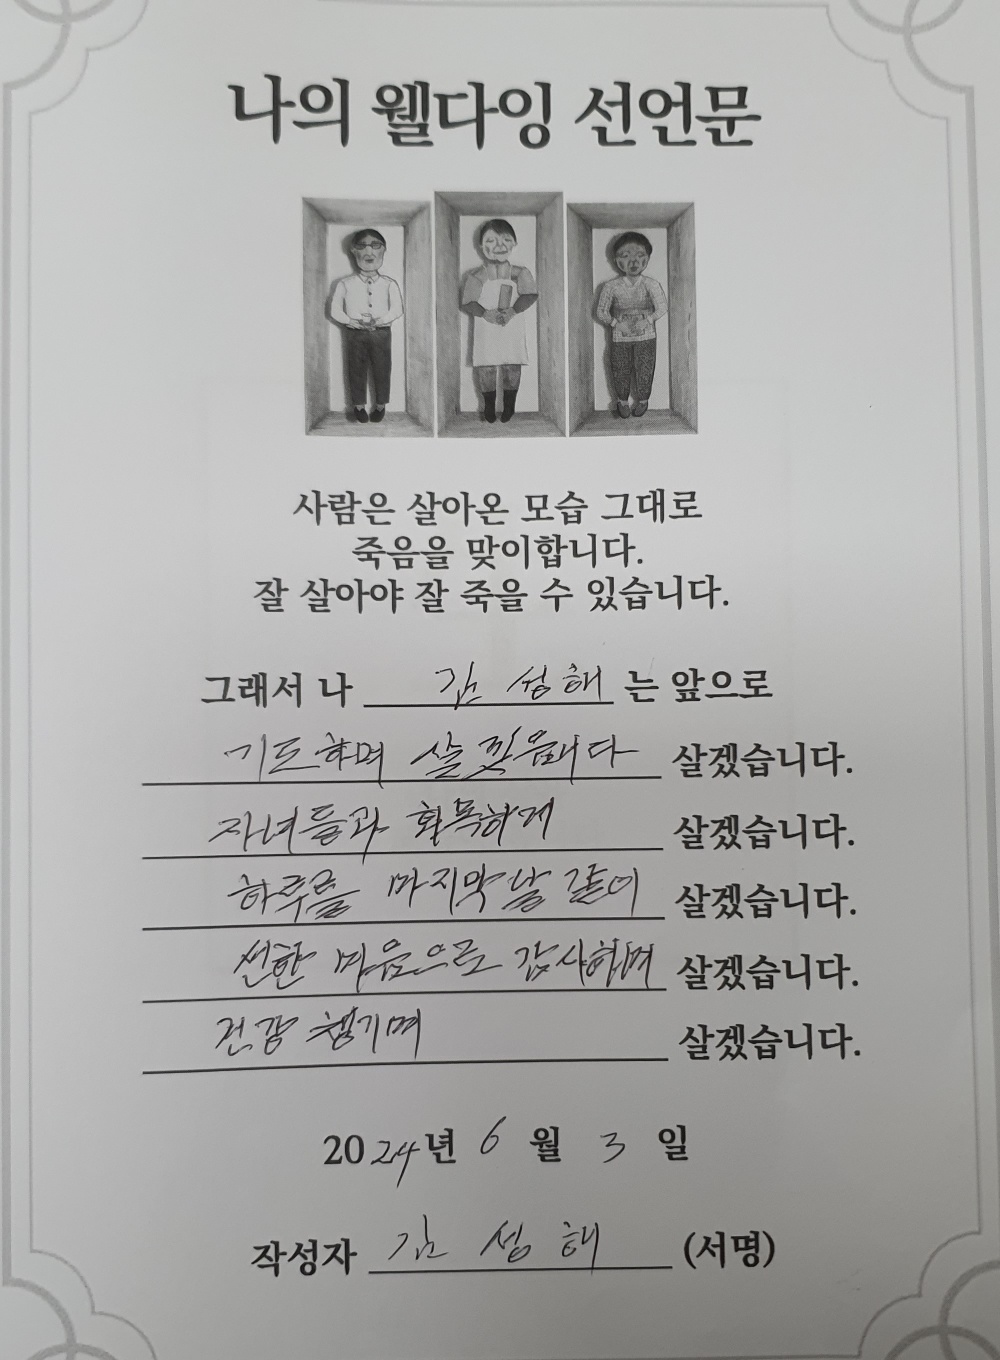 나의 웰다잉 선언문
사람은 살아온 모습 그대로
죽음을 맞이합니다.
잘 살아야 잘 죽을 수 있습니다.
그래서 나 김 성 해 는 앞으로
기도하며 살겠습니다.
자녀들과 화목하게 살겠습니다.
하루를 마지막 날 같이 살겠습니다.
선한 마음으로 감사하며 살겠습니다.
건강 챙기며 살겠습니다.
2024년 6 월 3 일
작성자 김 성 해 (서명)